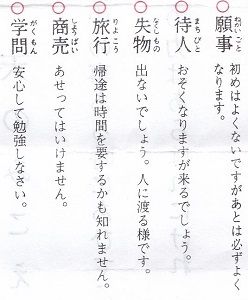 願事 初めはよくないですがあとは必ずよく
ねがいごと
なります。
待人 おそくなりますが来るでしょう。
まちびと
失物 出ないでしょう。人に渡る様です。
なくしもの
旅行 帰途は時間を要するかも知れません。
りよこう
商売 あせってはいけません。
しょうばい
学問 安心して勉強しなさい。
がくもん